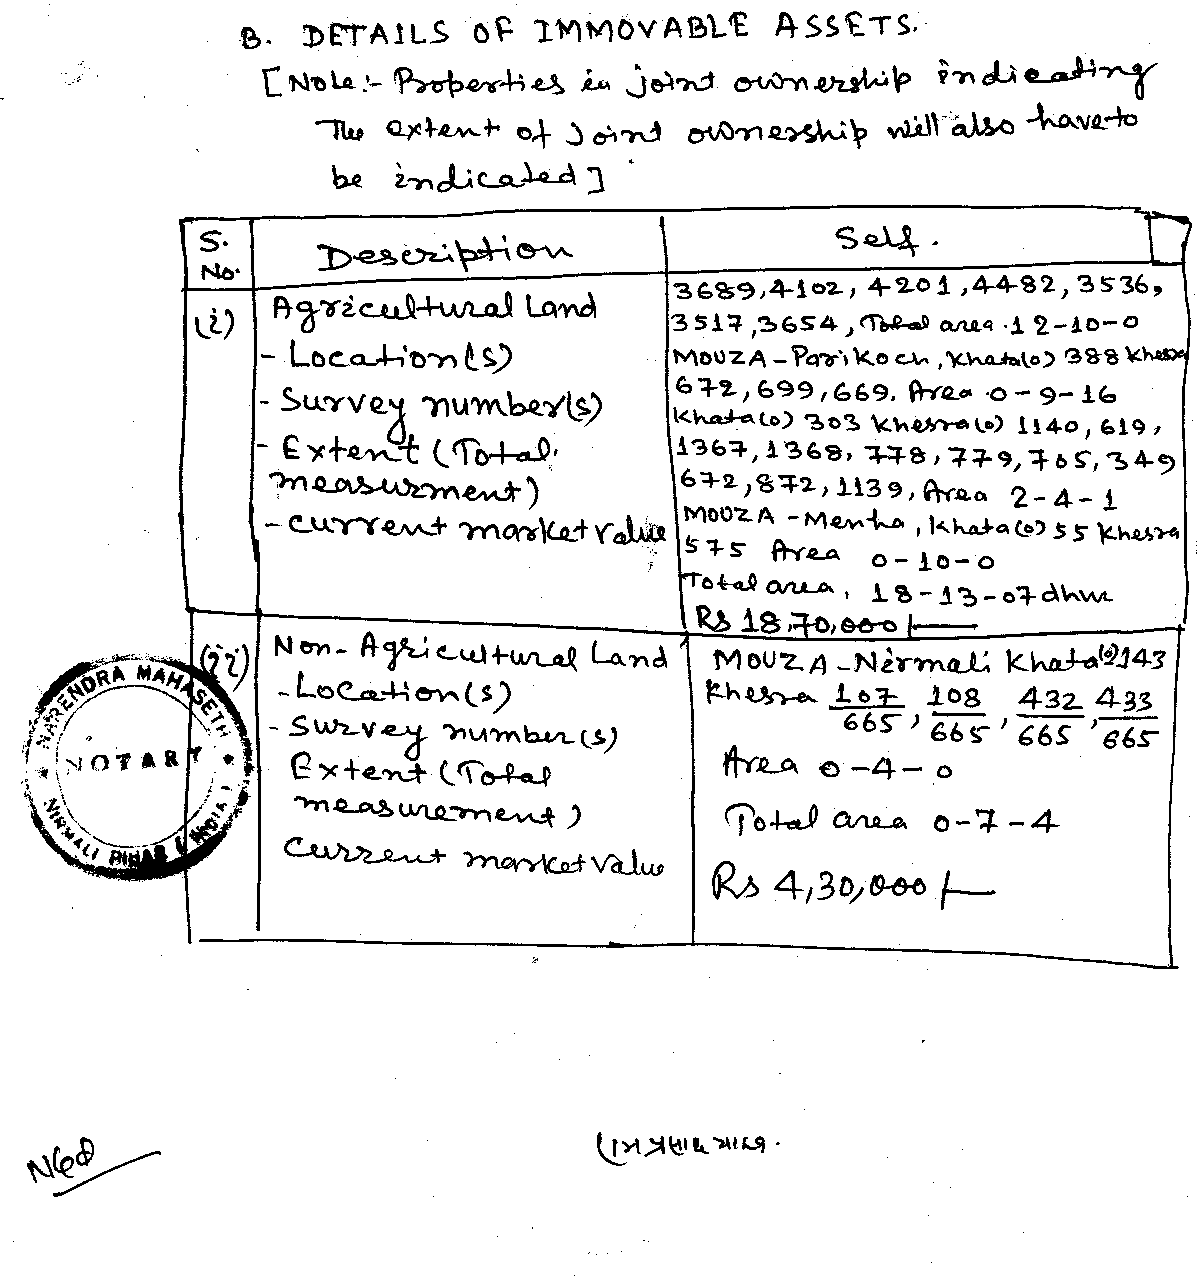 B. DETAILS OF IMMOVABLE ASSETS.
[Note:- Properties in joint ownership indicating
The extent of joint ownership will also have to
be indicated]
S. No.
Description
Self.
(i)
Agricultural Land
- Location(s)
- Survey number(s)
- Extent (Total
measurment)
- current market value
3689, 4102, 4201, 4482, 3536,
3517, 3654, Total area. 12-10-0
MOUZA - Parikoch, Khata(o) 388 Khesra
672, 699, 669. Area 0-9-16
Khata(o) 303 Khesra(o) 1140, 619,
1367, 1368, 778, 779, 705, 349
672, 872, 1139, Area 2-4-1
MOUZA - Menha, Khata(o) 55 Khesra
575 Area 0-10-0
Total area, 18-13-07 dhur
Rs 18,70,000/-
(ii)
Non-Agricultural Land
- Location(s)
- Survey number(s)
Extent (Total
measurement)
Current market value
MOUZA - Nirmali Khata(o) 2143
Khesra 107/665, 108/665, 432/665, 433/665
Area 0-4-0
Total area 0-7-4
Rs 4,30,000/-
NARENDRA MAHASETH
NOTARY
NIRMALI BIHAR (INDIA)
राम प्रसाद यादव.